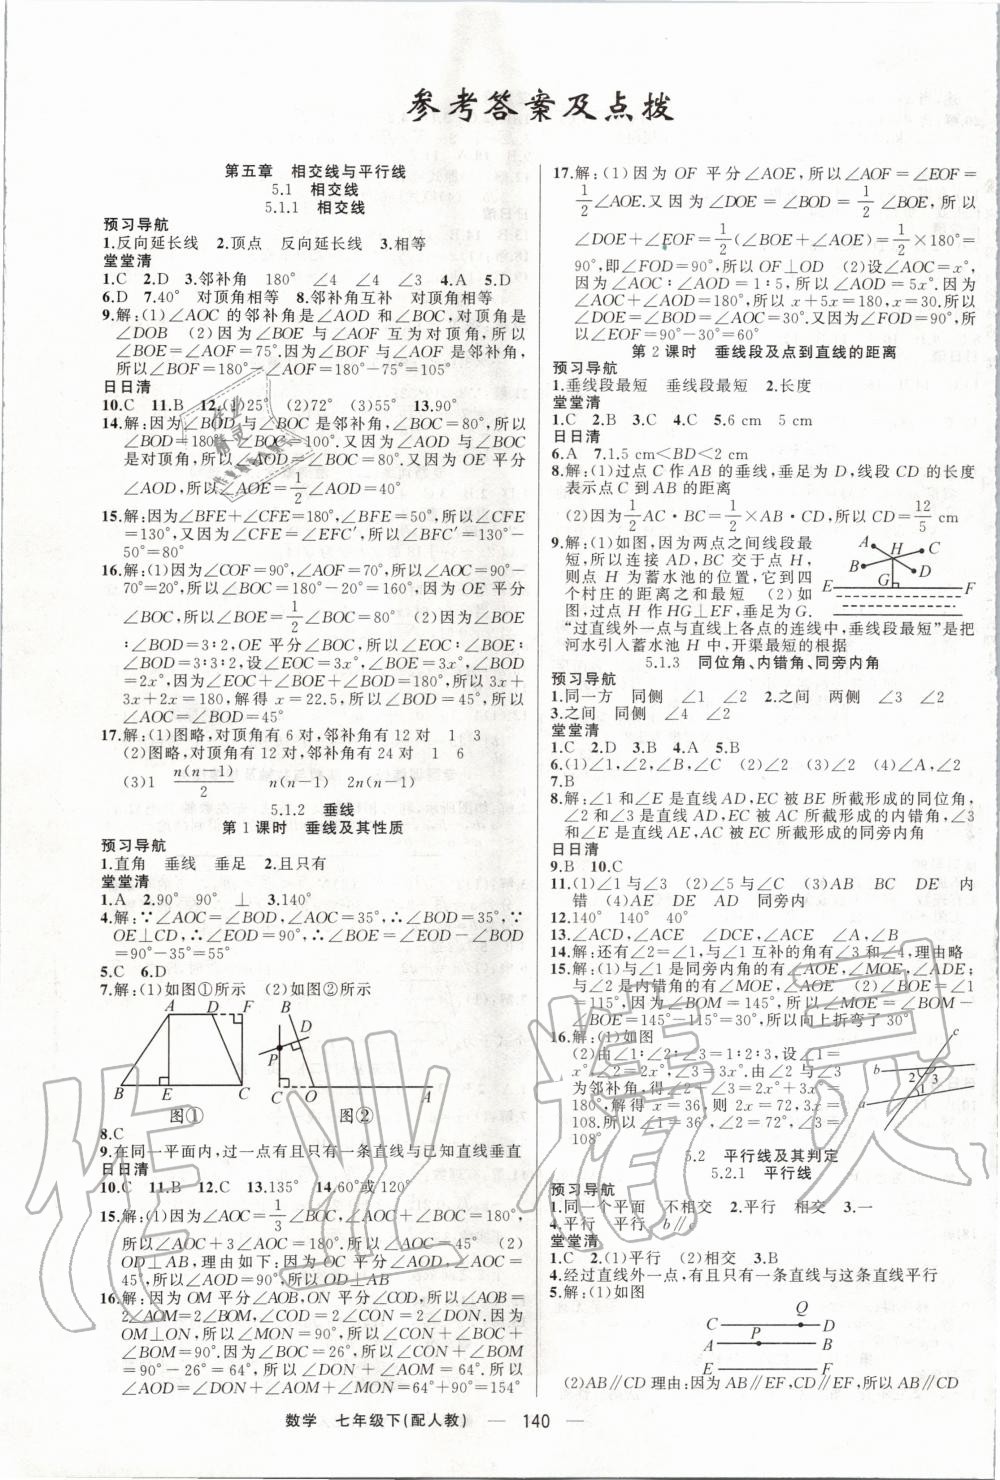 参考答案及点拨
第五章　相交线与平行线
5.1　相交线
5.1.1　相交线
预习导航
1.反向延长线　2.顶点　反向延长线　3.相等
堂堂清
1.C　2.D　3.邻补角　180°　∠4　∠3　4.A　5.D
6.D　7.40°　对顶角相等　8.邻补角互补　对顶角相等
9.解:(1)∠AOC的邻补角是∠AOD和∠BOC,对顶角是
∠DOB　(2)因为∠BOE与∠AOF互为对顶角,所以
∠BOE=∠AOF=75°.因为∠BOF与∠AOF是邻补角,
所以∠BOF=180°-∠AOF=180°-75°=105°
日日清
10.C　11.B　12.(1)25°　(2)72°　(3)55°　13.90°
14.解:因为∠BOD与∠BOC是邻补角,∠BOC=80°,所以
∠BOD=180°-∠BOC=100°.又因为∠AOD与∠BOC
是对顶角,所以∠AOD=∠BOC=80°.又因为OE平分
∠AOD,所以∠AOE=1/2∠AOD=40°
15.解:因为∠BFE+∠CFE=180°,∠BFE=50°,所以∠CFE
=130°,又因为∠CFE=∠EFC′,所以∠BFC′=130°-
50°=80°
16.解:(1)因为∠COF=90°,∠AOF=70°,所以∠AOC=90°-
70°=20°,所以∠BOC=180°-20°=160°,因为OE平分
∠BOC,所以∠BOE=1/2∠BOC=80°　(2)因为∠BOE
:∠BOD=3:2,OE平分∠BOC,所以∠EOC:∠BOE:
∠BOD=3:3:2,设∠EOC=3x°,∠BOE=3x°,∠BOD
=2x°,因为∠EOC+∠BOE+∠BOD=180°,所以3x+
3x+2x=180,解得x=22.5,所以∠BOD=45°,所以
∠AOC=∠BOD=45°
17.解:(1)图略,对顶角有6对,邻补角有12对　1　3
(2)图略,对顶角有12对,邻补角有24对　1　6
(3)1　n(n-1)/2　n(n-1)　2n(n-1)
5.1.2　垂线
第1课时　垂线及其性质
预习导航
1.直角　垂线　垂足　2.且只有
堂堂清
1.A　2.90°　90°　⊥　3.140°
4.解:∵∠AOC=∠BOD,∠AOC=35°,∴∠BOD=35°,∵
OE⊥CD,∴∠EOD=90°,∴∠BOE=∠EOD-∠BOD
=90°-35°=55°
5.C　6.D
7.解:(1)如图①所示　(2)如图②所示
A D F B E C
图①
B D P C O A
图②
8.C
9.在同一平面内,过一点有且只有一条直线与已知直线垂直
日日清
10.C　11.B　12.C　13.135°　14.60°或120°
15.解:(1)因为∠AOC=1/3∠BOC,∠AOC+∠BOC=180°,
所以∠AOC+3∠AOC=180°.所以∠AOC=45°　(2)
OD⊥AB,理由如下:因为OC平分∠AOD,所以∠AOC=
45°,所以∠AOD=90°,所以OD⊥AB
16.解:因为OM平分∠AOB,ON平分∠COD,所以∠AOB=
2∠AOM=2∠BOM,∠COD=2∠CON=2∠DON.因为
OM⊥ON,所以∠MON=90°,所以∠CON+∠BOC+
∠BOM=90°.因为∠BOC=26°,所以∠CON+∠BOM
=90°-26°=64°,所以∠DON+∠AOM=64°.所以
∠AOD=∠DON+∠AOM+∠MON=64°+90°=154°
17.解:(1)因为OF平分∠AOE,所以∠AOF=∠EOF=
1/2∠AOE.又因为∠DOE=∠BOD=1/2∠BOE,所以
∠DOE+∠EOF=1/2(∠BOE+∠AOE)=1/2×180°=
90°,即∠FOD=90°,所以OF⊥OD　(2)设∠AOC=x°,
因为∠AOC:∠AOD=1:5,所以∠AOD=5x°.因为
∠AOC+∠AOD=180°,所以x+5x=180,所以x=30.所以
∠DOE=∠BOD=∠AOC=30°.又因为∠FOD=90°,
所以∠EOF=90°-30°=60°
第2课时　垂线段及点到直线的距离
预习导航
1.垂线段最短　垂线段最短　2.长度
堂堂清
1.C　2.B　3.C　4.C　5.6 cm　5 cm
日日清
6.A　7.1.5 cm<BD<2 cm
8.解:(1)过点C作AB的垂线,垂足为D,线段CD的长度
表示点C到AB的距离
(2)因为1/2AC·BC=1/2×AB·CD,所以CD=12/5 cm
9.解:(1)如图,因为两点之间线段最
短,所以连接AD,BC交于点H,
则点H为蓄水池的位置,它到四
个村庄的距离之和最短　(2)如
图,过点H作HG⊥EF,垂足为G.
“过直线外一点与直线上各点的连线中,垂线段最短”是把
河水引入蓄水池H中,开渠最短的根据
A H C B G D E F
5.1.3　同位角、内错角、同旁内角
预习导航
1.同一方　同侧　∠1　∠2　2.之间　两侧　∠3　∠2
3.之间　同侧　∠4　∠2
堂堂清
1.C　2.D　3.B　4.A　5.B
6.(1)∠1,∠2,∠B,∠C　(2)∠2　(3)∠2　(4)∠A,∠C
7.B
8.解:∠1和∠E是直线AD,EC被BE所截形成的同位角,
∠2和∠3是直线AD,EC被AC所截形成的内错角,∠3
和∠E是直线AC,BE被EC所截形成的同旁内角
日日清
9.B　10.C
11.(1)∠1与∠3　(2)∠5与∠C　(3)AB　BC　DE　内
错　(4)AE　DE　AD　同旁内
12.140°　140°　40°
13.∠ACD,∠ACE　∠DCE,∠ACE　∠A,∠B
14.解:还有∠2=∠1,与∠1互补的角有∠3和∠4,理由略
15.解:(1)与∠1是同旁内角的有∠AOE,∠MOE,∠ADE;
与∠2是内错角的有∠MOE,∠AOE　(2)∠BOE=∠1
=115°,因为∠BOM=145°,所以∠MOE=∠BOM-
∠BOE=145°-115°=30°,所以向上折弯了30°
16.解:(1)如图
(2)由∠1:∠2:∠3=1:2:3,设∠1=
x°,∠2=2x°,∠3=3x°.由∠2与∠3
为邻补角,得∠2+∠3=2x°+3x°=
180°,解得x=36,则2x=72,3x=
108.所以∠1=36°,∠2=72°,∠3=
108°
c b a 2 3 1
5.2　平行线及其判定
5.2.1　平行线
预习导航
1.同一个平面　不相交　2.平行　相交　3.一
4.平行　平行　b∥
堂堂清
1.C　2.(1)平行　(2)相交　3.B
4.经过直线外一点,有且只有一条直线与这条直线平行
5.解:(1)如图
C Q D
A P B
E F
(2)AB∥CD理由:因为AB∥EF,CD∥EF,所以AB∥CD
数学　七年级下(配人教)　— 140 —
作业精灵